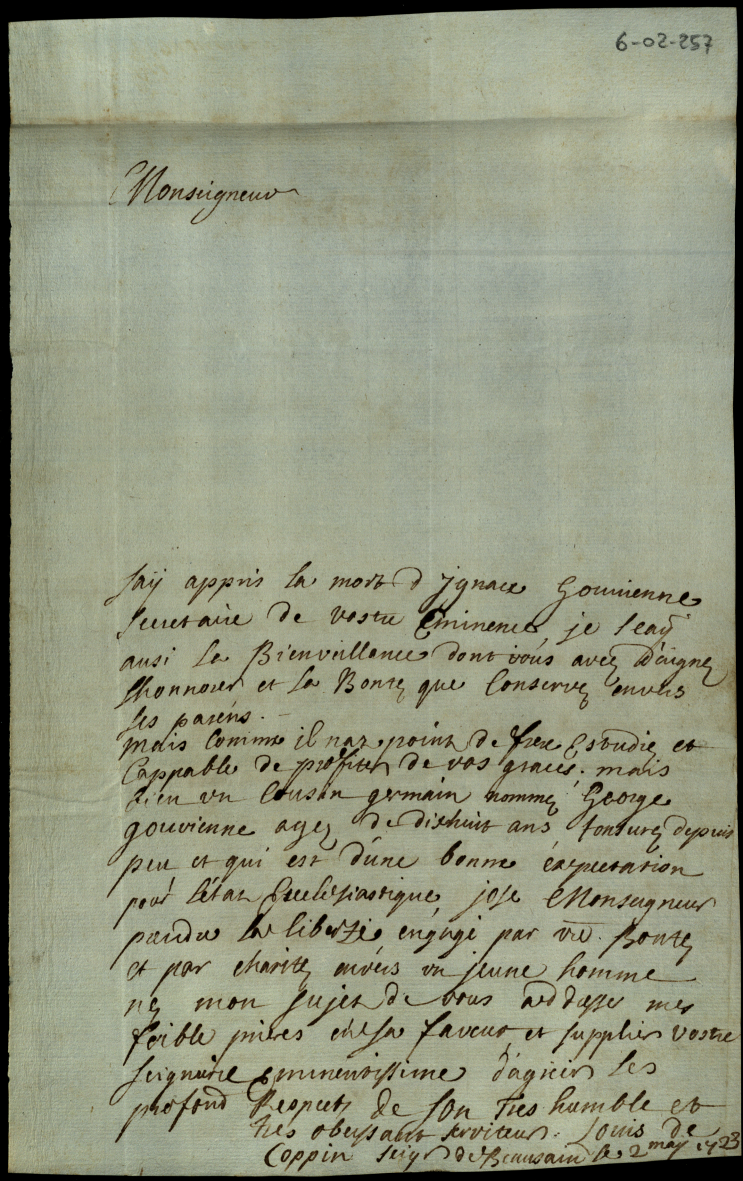 6-02-257
Monseigneur
Jaÿ appris la mort d'Jgnace Gouvienne
secretaire de vostre Eminence, je scaÿ
ausi la Bienveillance dont vous avez daigne
lhonnorer et la Bonte que Conservez envers
ses parens.
Mais Comme il naz point de frere Estudie et
Cappable de profiter de vos graces. mais
bien vn Cousin germain nomme George
gouvienne agez de dixhuit ans tonsurez depuis
peu et qui est d'une bonne expectation
pour létat Ecclesiastique, jose Monseigneur
prendre la liberté engagé par vre. Bontez
et par charitez envers vn jeune homme
nez mon sujet de vous addresser mes
foible prieres en sa faveur et supplier vostre
seigneurie Eminentissime d'agreer les
profond Respects de son tres humble et
tres obeissant serviteur. Louis de
Coppin seigr de Beausain le 2 may 1723